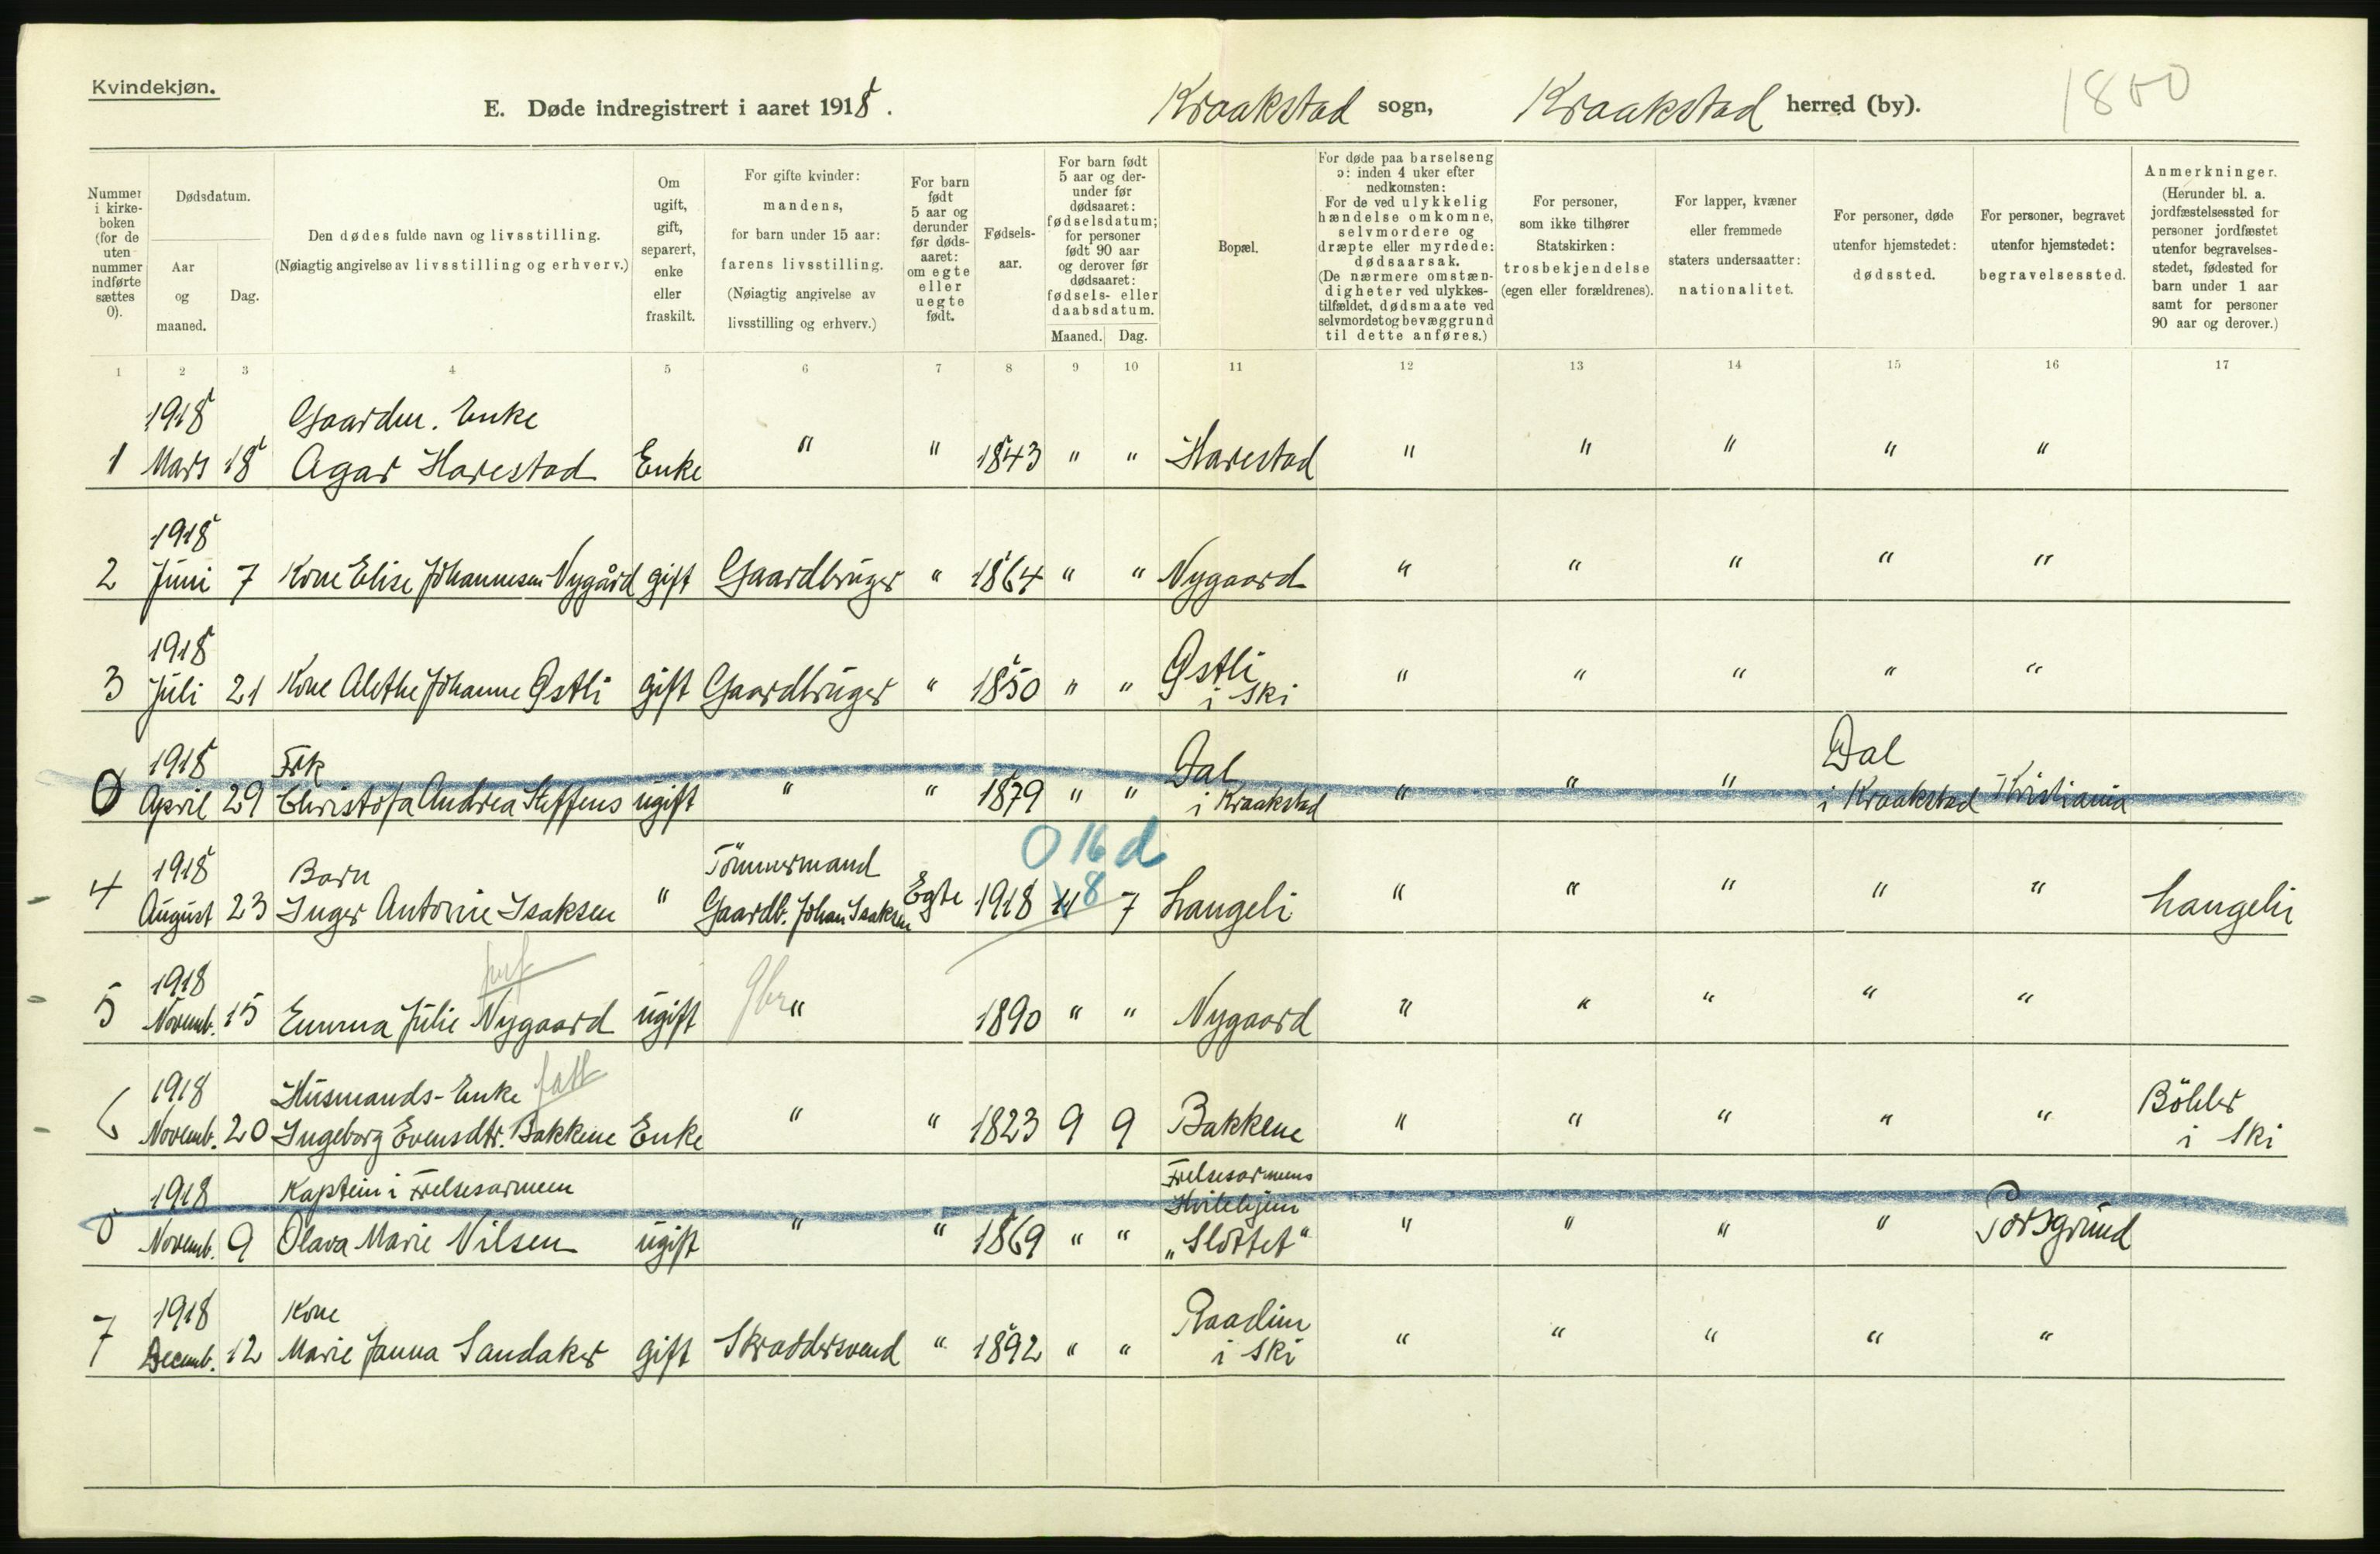 Kvindekjøn.
E. Døde indregistrert i aaret 1918.
Kraakstad sogn, Kraakstad herred (by).
1800
Nummer
i kirke-
boken
(for de
uten
nummer
indførte
sættes
0).
Dødsdatum.
Aar
og
maaned.
Dag.
Den dødes fulde navn og livsstilling.
(Nøiagtig angivelse av livsstilling og erhverv.)
Om
ugift,
gift,
separert,
enke
eller
fraskilt.
For gifte kvinder:
mandens,
for barn under 15 aar:
farens livsstilling.
(Nøiagtig angivelse av
livsstilling og erhverv.)
For barn
født
5 aar og
derunder
før døds-
aaret:
om egte
eller
uegte
født.
Fødsels-
aar.
For barn født
5 aar og der-
under før
dødsaaret:
fødselsdatum;
for personer
født 90 aar
og derover før
dødsaaret:
fødsels- eller
daabsdatum.
Maaned. Dag.
Bopæl.
For døde paa barselseng
ɔ: inden 4 uker efter
nedkomsten:
For de ved ulykkelig
hændelse omkomne,
selvmordere og
dræpte eller myrdede:
dødsaarsak.
(De nærmere omstæn-
digheter ved ulykkes-
tilfældet, dødsmaate ved
selvmordet og bevæggrund
til dette anføres.)
For personer,
som ikke tilhører
Statskirken:
trosbekjendelse
(egen eller forældrenes).
For lapper, kvæner
eller fremmede
staters undersaatter:
nationalitet.
For personer, døde
utenfor hjemstedet:
dødssted.
For personer, begravet
utenfor hjemstedet:
begravelsessted.
Anmerkninger.
(Herunder bl. a.
jordfæstelsessted for
personer jordfæstet
utenfor begravelses-
stedet, fødested for
barn under 1 aar
samt for personer
90 aar og derover.)
1 2 3 4 5 6 7 8 9 10 11 12 13 14 15 16 17
1918 Gaardm. Enke
1 Mars 18 Agar Harestad Enke " " 1843 " " Harestad " " " " "
1918
2 Juni 7 Kone Elise Johannesen Nygård gift Gaardbruger " 1864 " " Nygaard " " " " "
1918 Østli
3 Juli 21 Kone Alethe Johanne Østli gift Gaardbruger " 1850 " " i Ski " " " " "
1918 Frk Dal Dal
0 April 29 Christofa Andrea Steffens ugift " " 1879 " " i Kraakstad " " " i Kraakstad Kristiania
1918 Barn Tömmermand 0 16 d
4 August 23 Inger Antonie Isaksen " Gaardb. Johan Isaksen Egte 1918 8 7 Langeli " " " " " Langeli
1918
5 Novemb. 15 Emma Julie Nygaard ugift " 1890 " " Nygaard " " " " "
1918 Husmands-Enke fatt Böhler
6 Novemb. 20 Ingeborg Evensdtr. Bakkene Enke " " 1823 9 9 Bakkene " " " " " i Ski
1918 Kaptein i Frelsesarmeen Frelsesarmeens
Hvilehjem
0 Novemb. 9 Olava Marie Nilsen ugift " " 1869 " " „Slottet" " " " " Porsgrund
1918 Kone Raadim
7 Decemb. 12 Marie Janna Sandaker gift Skraddersvend " 1892 " " i Ski " " " " "